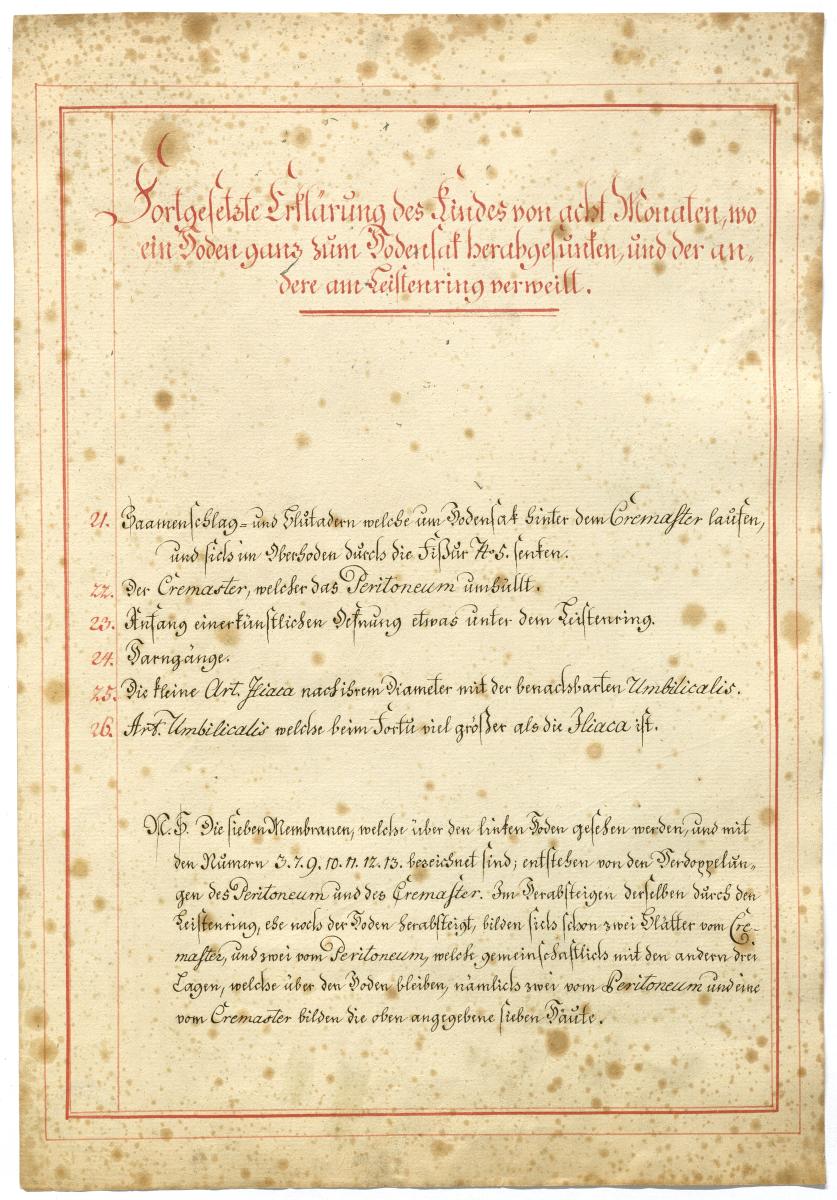 Fortgesetzte Erklärung des Kindes von acht Monaten, wo
ein Hoden ganz zum Hodensak herabgesunken, und der an-
dere am Leistenring verweilt.
21. Saamenschlag- und Blutadern welche um Hodensak hinter dem Cremaster laufen,
und sich im Oberhoden durch die Fißur № 5. senken.
22. Der Cremaster, welcher das Peritoneum umhüllt.
23. Anfang einer künstlichen Oefnung etwas unter dem Leistenring.
24. Harngänge.
25. Die kleine Art. Iliaca nach ihrem Diameter mit der benachbarten Umbilicalis.
26. Art. Umbilicalis welche beim Foetu viel größer als die Iliaca ist.
N. B. Die sieben Membranen, welche über den linken Hoden gesehen werden, und mit
den Numern 3. 7. 9. 10. 11. 12. 13. bezeichnet sind; entstehen von den Verdoppelun-
gen des Peritoneum und des Cremaster. Im Herabsteigen derselben durch den
Leistenring, ehe noch der Hoden herabsteigt, bilden sich schon zwei Blätter vom Cre-
master, und zwei vom Peritoneum, welche gemeinschaftlich mit den andern drei
Lagen, welche über den Hoden bleiben, nämlich zwei vom Peritoneum und eine
vom Cremaster bilden die oben angegebene sieben Häute.